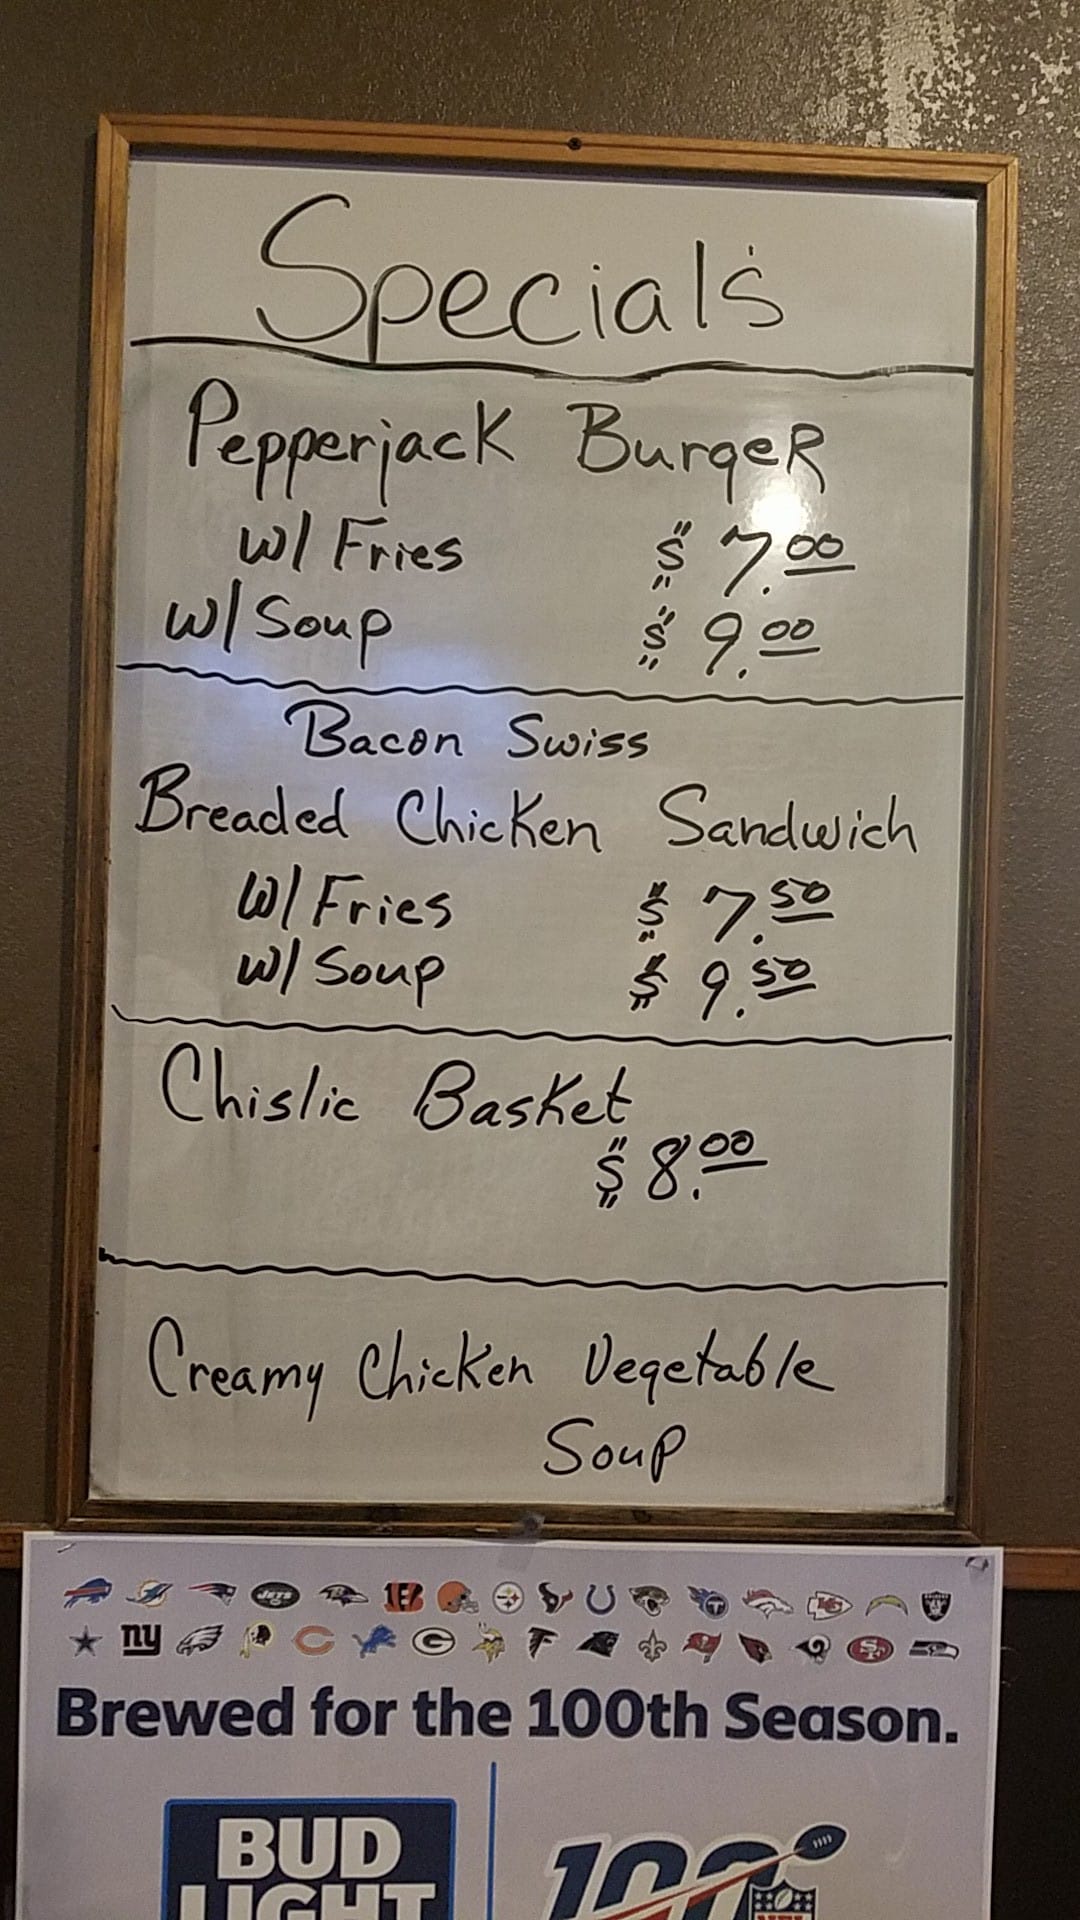 Special's
Pepperjack Burger
w/ Fries $ 7.00
w/ Soup $ 9.00
Bacon Swiss
Breaded Chicken Sandwich
w/ Fries $ 7.50
w/ Soup $ 9.50
Chislic Basket
$ 8.00
Creamy Chicken Vegetable
Soup
JETS
ny
Brewed for the 100th Season.
BUD
LIGHT
100
NFL